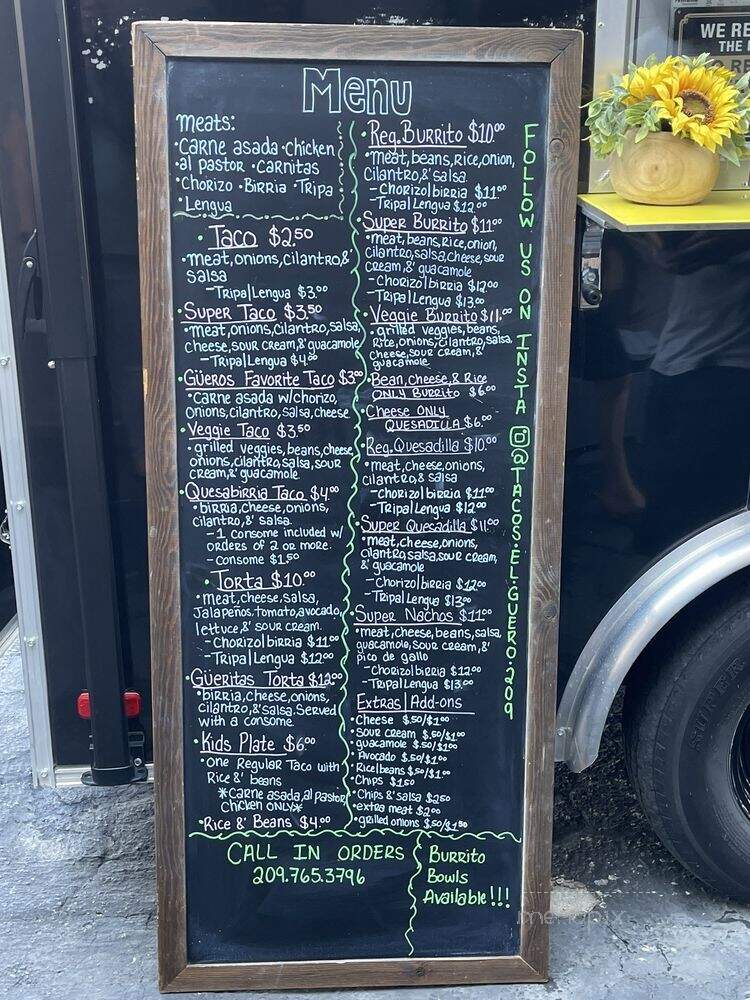 Menu
meats:
•Carne asada •Chicken
•al pastor •Carnitas
•Chorizo •Birria •Tripa
•Lengua
•Taco $2.50
•meat, onions, cilantro, &
salsa
-Tripa|Lengua $3.00
•Super Taco $3.50
•meat, onions, cilantro, salsa,
cheese, sour cream, & guacamole
-Tripa|Lengua $4.00
•Güeros Favorite Taco $3.00
•carne asada w/chorizo,
onions, cilantro, salsa, cheese
•Veggie Taco $3.50
•grilled veggies, beans, cheese,
onions, cilantro, salsa, sour
cream, & guacamole
•Quesabirria Taco $4.00
•birria, cheese, onions,
cilantro, & salsa.
-1 consome included w/
orders of 2 or more.
-consome $1.50
•Torta $10.00
•meat, cheese, salsa,
Jalapeños, tomato, avocado,
lettuce, & sour cream.
-Chorizo|birria $11.00
-Tripa|Lengua $12.00
•Güeritas Torta $12.00
•birria, cheese, onions,
cilantro, & salsa. Served
with a consome
•Kids Plate $6.00
•One Regular Taco with
Rice & beans
*Carne asada, al pastor,
Chicken ONLY*
•Rice & Beans $4.00
•Reg. Burrito $10.00
•meat, beans, rice, onion,
cilantro, & salsa.
-Chorizo|birria $11.00
-Tripa|Lengua $12.00
•Super Burrito $11.00
•meat, beans, rice, onion,
cilantro, salsa, cheese, sour
cream, & guacamole
-Chorizo|birria $12.00
-Tripa|Lengua $13.00
•Veggie Burrito $11.00
•grilled veggies, beans,
rice, onions, cilantro, salsa,
cheese, sour cream, &
guacamole
•Bean, cheese, & Rice
ONLY Burrito $6.00
•Cheese ONLY
QUESADILLA $6.00
•Reg. Quesadilla $10.00
•meat, cheese, onions,
cilantro, & salsa
-chorizo|birria $11.00
-Tripa|Lengua $12.00
•Super Quesadilla $11.00
•meat, cheese, onions,
cilantro, salsa, sour cream,
& guacamole
-Chorizo|birria $12.00
-Tripa|Lengua $13.00
•Super Nachos $11.00
•meat, cheese, beans, salsa,
guacamole, sour cream, &
pico de gallo
-Chorizo|birria $12.00
-Tripa|Lengua $13.00
Extras|Add-ons
•Cheese $.50/$1.00
•Sour cream $.50/$1.00
•guacamole $.50/$1.00
•Avocado $.50/$1.00
•Rice|beans $.50/$1.00
•Chips $1.50
•Chips & salsa $2.50
•extra meat $2.00
•grilled onions $.50/$1.50
FOLLOW US ON INSTA @TACOS.EL.GUERO.209
CALL IN ORDERS
209.765.3796
Burrito
Bowls
Available!!!
WE RE
THE
menupix